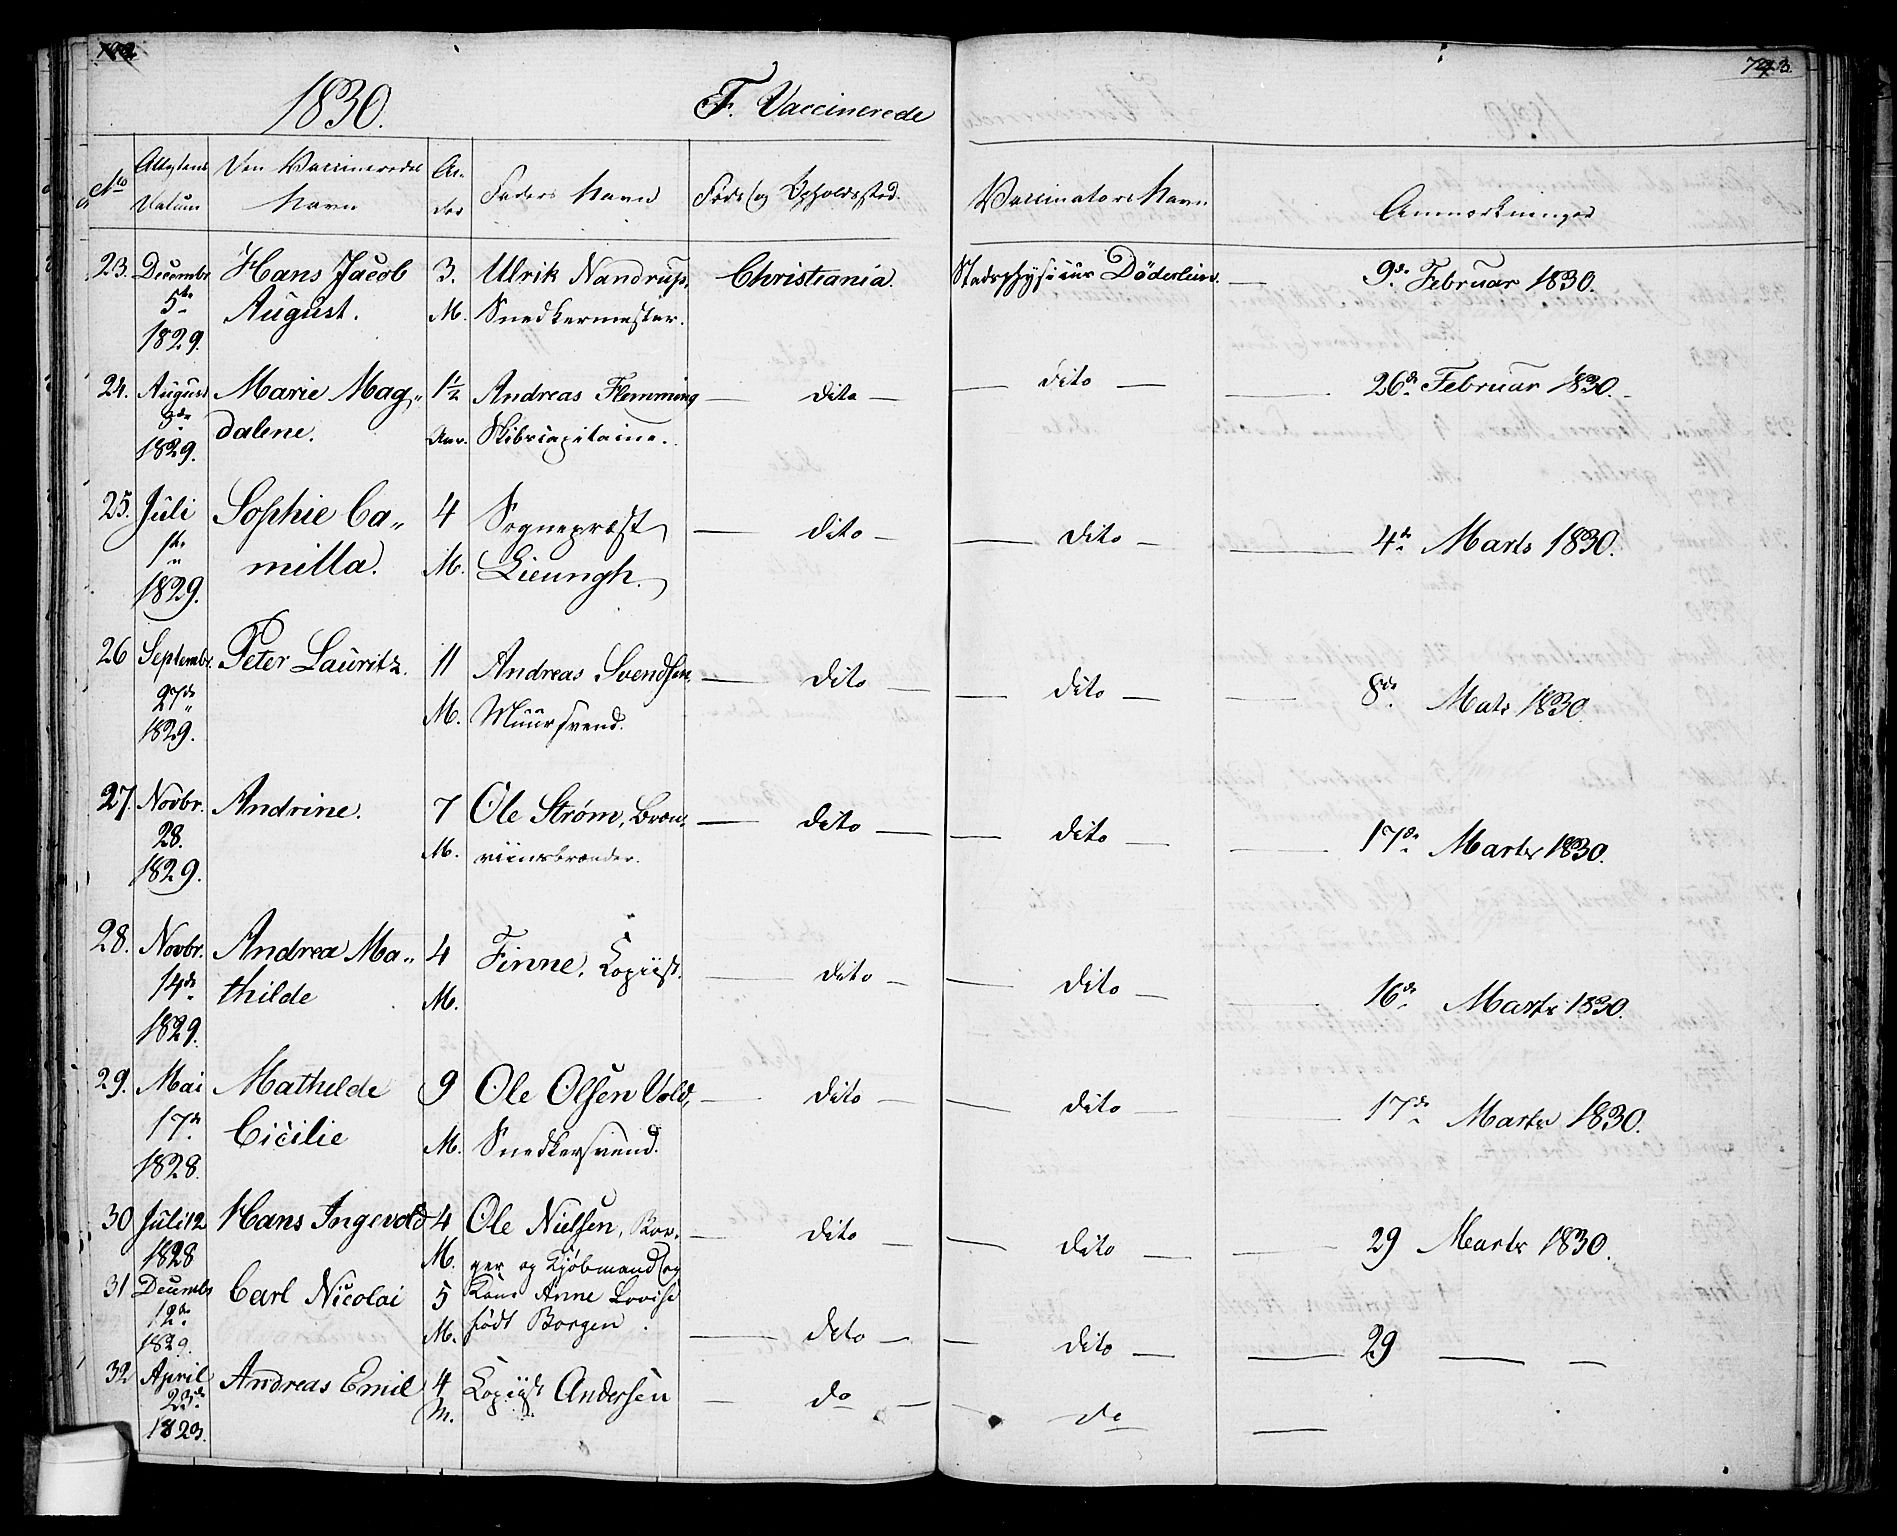 1830.
F. Vaccinerede
No
Attestens Datum
Den Vaccineredes Navn
Alder
Faders Navn
Føde- og Opholdssted.
Vaccinators Navn
Anmærkninger
23. Decembr 5te 1829. Hans Jacob August. 3. M. Ulrik Nandrup, Snedkermester. Christiania. Stadsphysicus Döderlein. — 9de Februar 1830.
24. August 1829. Marie Mag„ dalene. 1½ Aar. Andreas Flemming Skibscapitaine. — dito — — dito — — 26de Februar 1830.
25. Juli 1829. Sophie Ca„ milla. 4 M. Sognepræst Lieungh. — dito — — dito — — 4de Marts 1830.
26 Septembr. 27de 1829. Peter Lauritz. 11 M. Andreas Svendsen, Muursvend. — dito — — dito — — 8de Mats 1830.
27. Novbr. 28. 1829. Andrine. 7 M. Ole Strøm, Bræn„ viinsbrænder. — dito — — dito — — 17de Marts 1830.
28. Novbr. 14de 1829. Andrea Ma„ thilde 4 M. Finne, Kopiist. — dito — — dito — — 16de Marts 1830.
29. Mai 17de 1828. Mathilde Cicilie 9 M. Ole Olsen Vold, Snedkersvend. — dito — — dito — — 17de Marts 1830.
30 Juli 12 1828 Hans Ingevold 4 M. Ole Nielsen, Bor„ ger og Kjøbmand og — dito — — dito — — 29 Marts 1830.
31 Decembr 12te 1829. Carl Nicolai 5 M. Kone Anne Lovise født Borgen. — dito — — dito — — 29 — —
32 April 23de 1823. Andreas Emil 4 M. Kopiist Andersen — do — — do — —